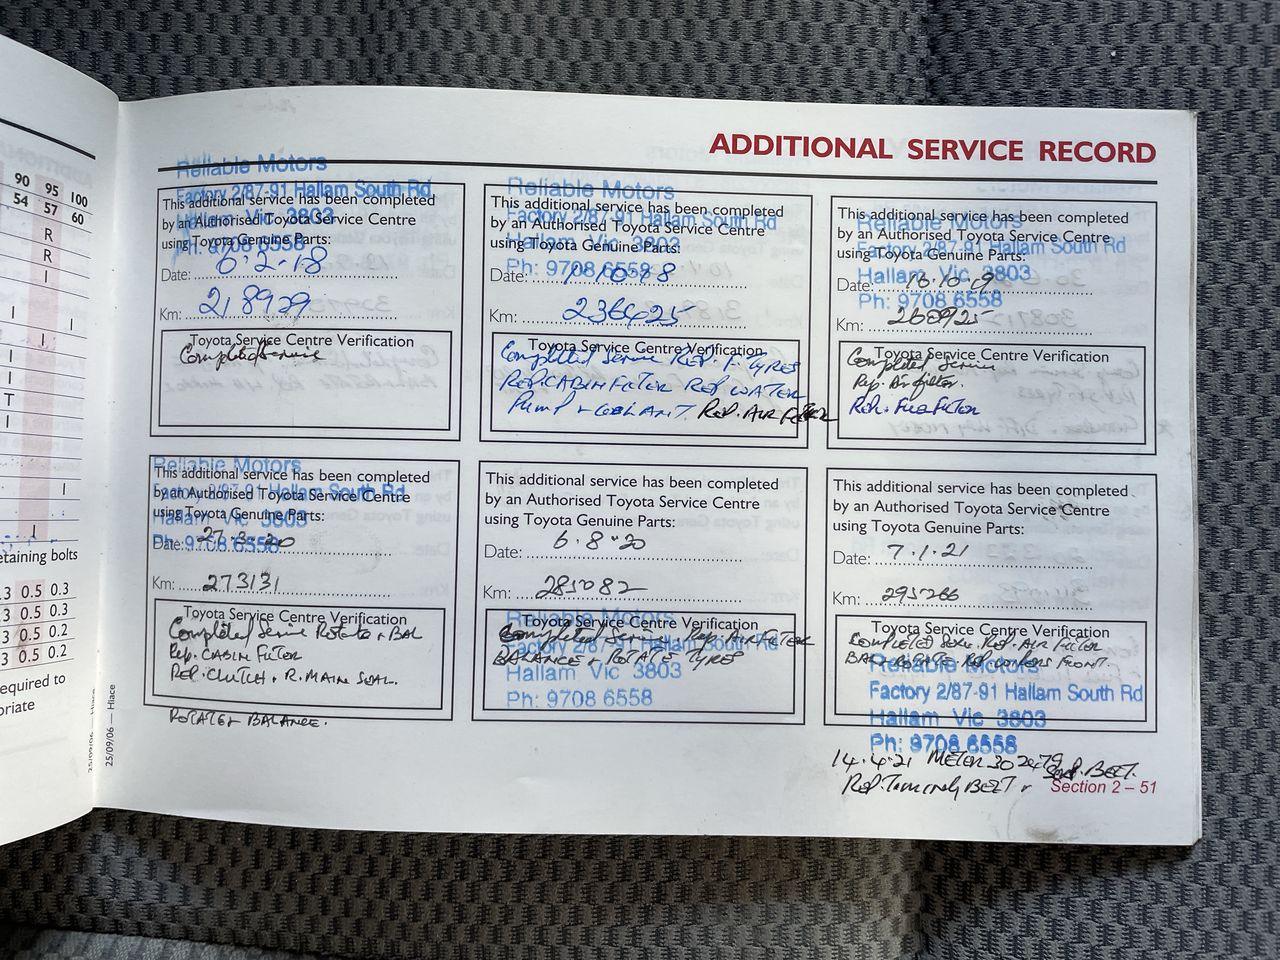 90 95 100
54 57 60
R
R
I
I I
I
I
T
I
I
I
etaining bolts
.3 0.5 0.3
.3 0.5 0.3
3 0.5 0.2
3 0.5 0.2
equired to
oriate
25/09/06 — Hiace
25/09/06 — Hiace
ADDITIONAL SERVICE RECORD
Reliable Motors
Factory 2/87-91 Hallam South Rd
Hallam Vic 3803
Ph: 9708 6558
This additional service has been completed
by an Authorised Toyota Service Centre
using Toyota Genuine Parts:
Date: 6.2.18
Km: 218929
Toyota Service Centre Verification
Completed Service
Reliable Motors
Factory 2/87-91 Hallam South Rd
Hallam Vic 3803
Ph: 9708 6558
This additional service has been completed
by an Authorised Toyota Service Centre
using Toyota Genuine Parts:
Date:
Km: 236425
Toyota Service Centre Verification
Completed Service REP. F. TYRES
REP. CABIN FILTER REP WATER
PUMP + COOLANT REP. AIR FILTER
Reliable Motors
Factory 2/87-91 Hallam South Rd
Hallam Vic 3803
Ph: 9708 6558
This additional service has been completed
by an Authorised Toyota Service Centre
using Toyota Genuine Parts:
Date: 16.10.19
Km: 260925
Toyota Service Centre Verification
Completed Service
Rep. Air filter.
REP. FUEL FILTER
Reliable Motors
Factory 2/87-91 Hallam South Rd
Hallam Vic 3803
Ph: 9708 6558
This additional service has been completed
by an Authorised Toyota Service Centre
using Toyota Genuine Parts:
Date: 27.3.20
Km: 273131
Toyota Service Centre Verification
Completed Service Rotate + BAL
Rep. CABIN FILTER
REP. CLUTCH + R. MAIN SEAL.
ROTATE + BALANCE.
This additional service has been completed
by an Authorised Toyota Service Centre
using Toyota Genuine Parts:
Date: 6.8.20
Km: 285082
Toyota Service Centre Verification
Completed Service Rep. AIR FILTER
BALANCE + ROTATE TYRES
Reliable Motors
Factory 2/87-91 Hallam South Rd
Hallam Vic 3803
Ph: 9708 6558
This additional service has been completed
by an Authorised Toyota Service Centre
using Toyota Genuine Parts:
Date: 7.1.21
Km: 295266
Toyota Service Centre Verification
COMPLETED REP. AIR FILTER
ROTATE REP FRONT.
Reliable Motors
Factory 2/87-91 Hallam South Rd
Hallam Vic 3803
Ph: 9708 6558
14.4.21 METER 302479 BELT.
REP. BELT +
Section 2 – 51